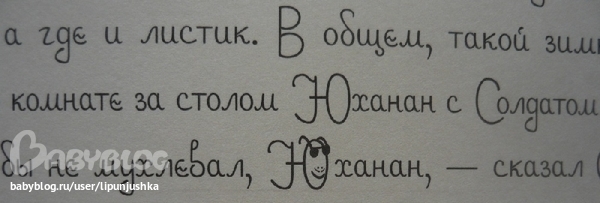 а где и листик. В общем, такой зим
комнате за столом Юханан с Солдатом
бы не мухлевал, Юханан, — сказал
BABYBLOG
babyblog.ru/user/lipunjushka